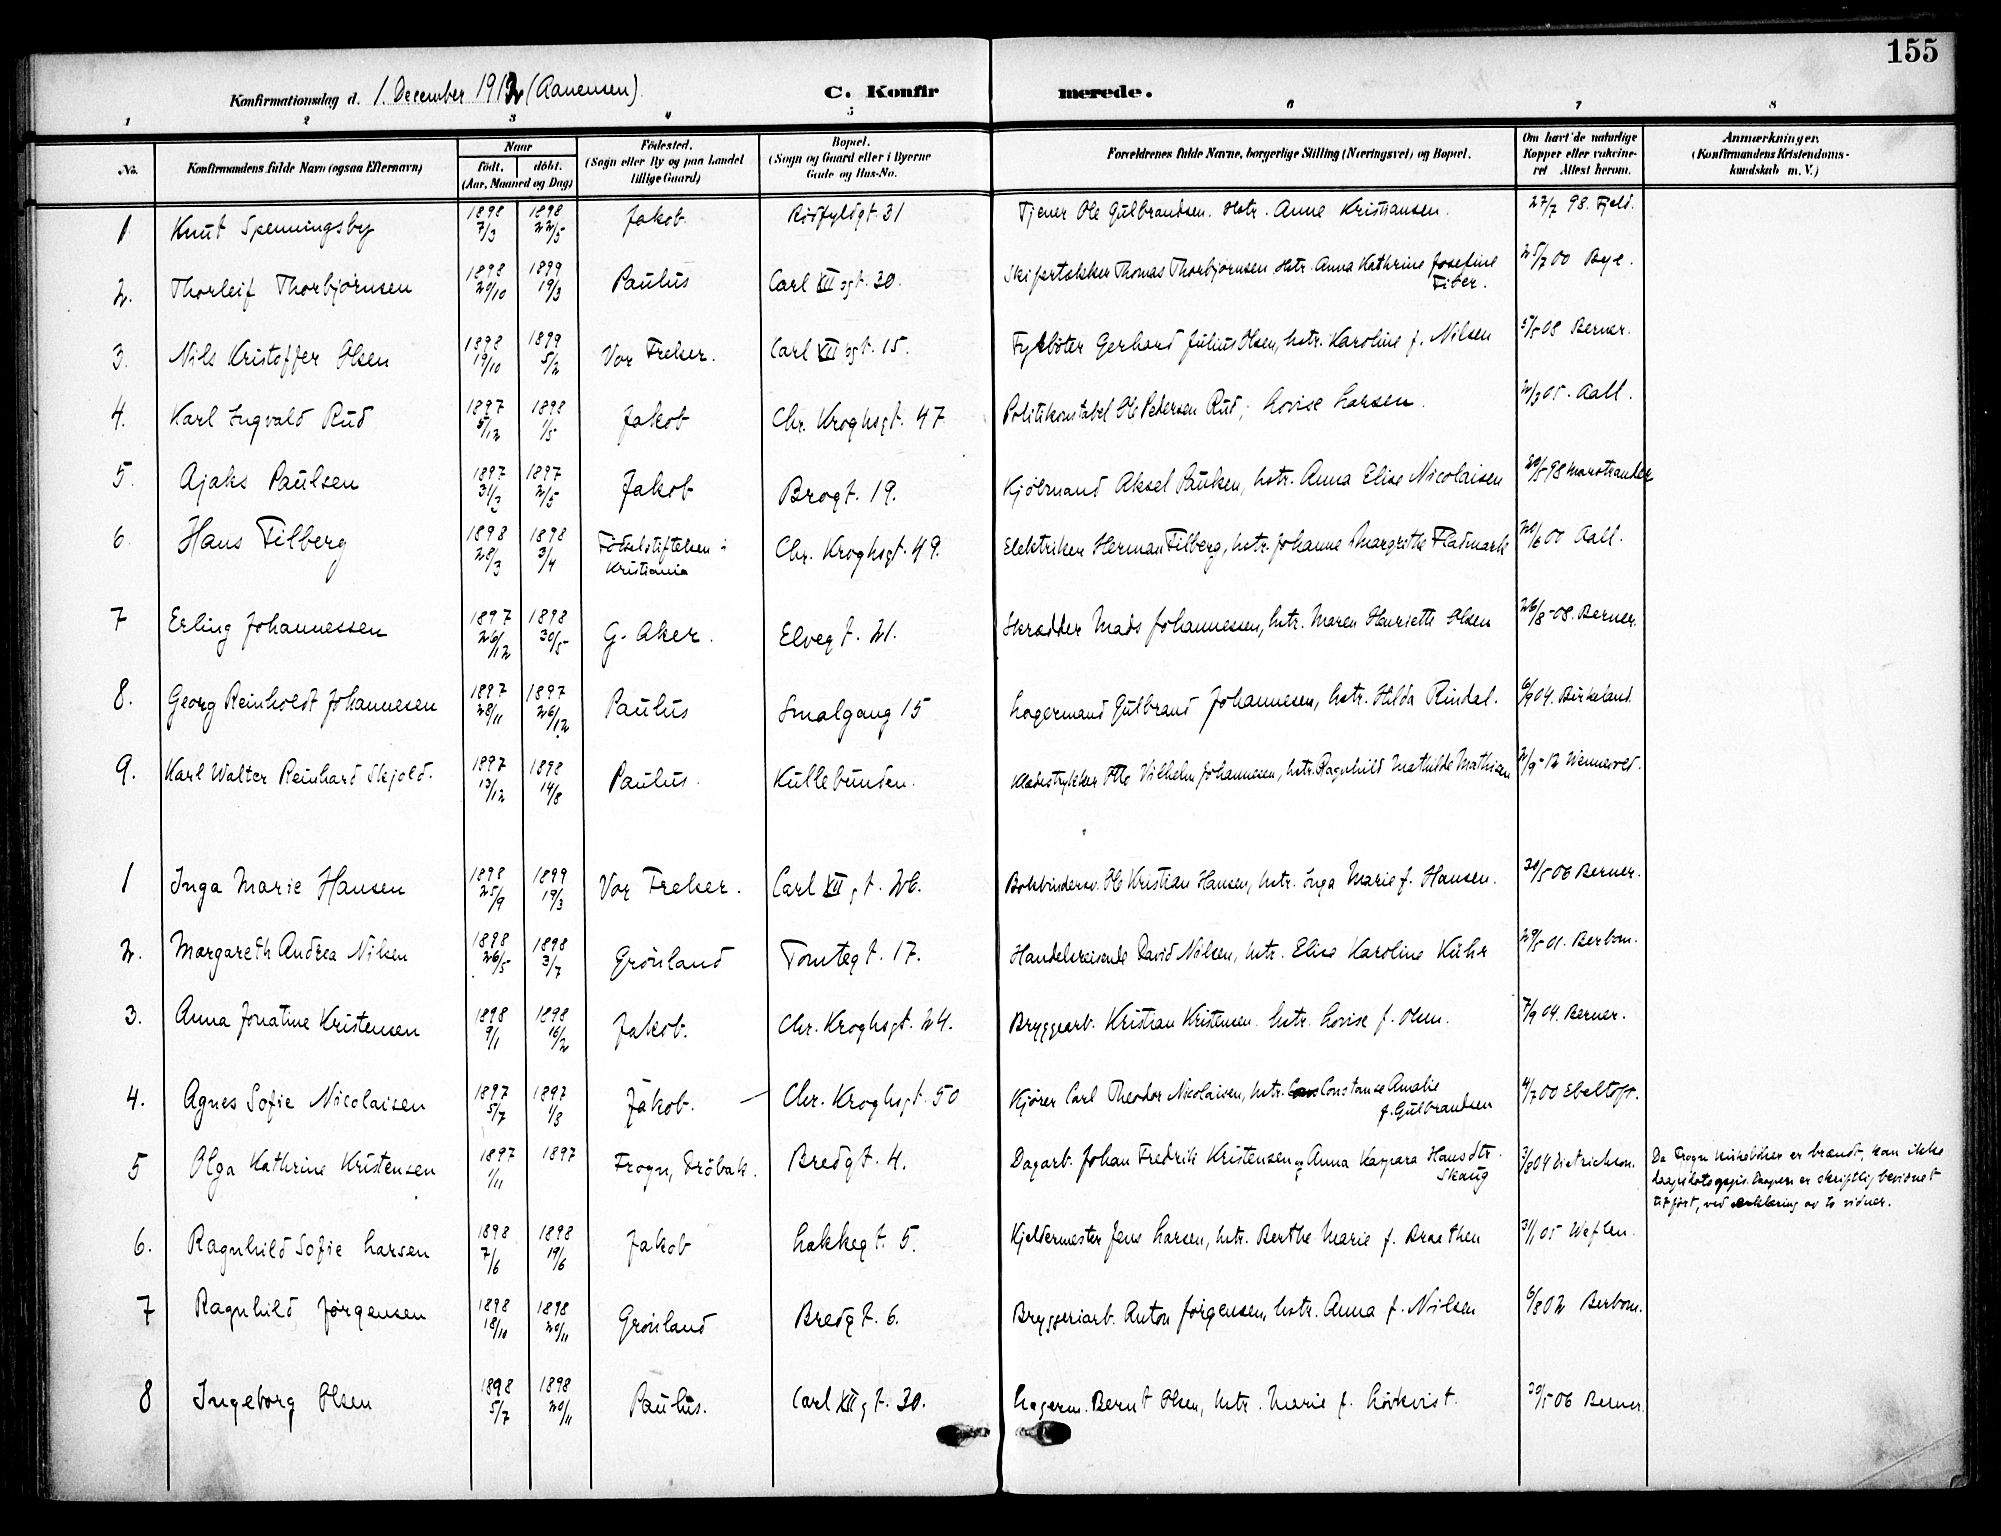 155
Konfirmationsdag d. 1. December 1912 (Aanensen)
C. Konfirmerede.
1 2 3 4 5 6 7 8
No. Konfirmandens fulde Navn (ogsaa Efternavn) Naar født, døbt. (Aar, Maaned og Dag) Fødested. (Sogn eller By og paa Landet tillige Gaard) Bopæl. (Sogn og Gaard eller i Byerne Gade og Hus-No. Forældrenes fulde Navne, borgerlige Stilling (Næringsvei) og Bopæl. Om havt de naturlige Kopper eller vakcineret Attest herom. Anmærkninger. (Konfirmandens Kristendomskundskab m. V.)
1 Knut Spenningsby 1898 7/3 1898 22/5 Jakob 31 Tjener Ole Gulbrandsen. Hstr. Anne Kristiansen. 27/7 98. Fjeld.
2. Thorleif Thorbjørnsen 1898 29/10 1899 19/3 Paulus Carl XII sgt. 30. Skifertækker Thomas Thorbjørnsen Hstr. Anna Kathrine Josefine 25/7 00 Bye.
3. Nils Kristoffer Olsen 1898 19/10 1899 5/2 Vor Frelser. Carl XII sgt. 15. Fyrbøter Gerhard Julius Olsen, hstr. Karoline f. Nilsen 5/5 08 Berner.
4. Karl Ingvald Rud 1897 5/12 1898 1/5 Jakob Chr. Kroghsgt. 47 Politikonstabel Ole Pedersen Rud, Lovise Larsen. 2/3 05. Aall.
5. Ajaks Paulsen 1897 31/3 1897 2/5 Jakob Brogt. 19. Kjølmand Aksel Paulsen, hstr. Anna Elise Nicolaisen 20/5 98 Marstrander
6. Hans Filberg 1898 28/3 1898 3/4 Fødselsstiftelsen i Kristiania Chr. Kroghsgt. 49. Elektriker Herman Filberg, hstr. Johanne Margrethe Fladmark 20/6 00 Aall.
7 Erling Johannessen 1897 26/12 1898 30/5 G. Aker. Elvegt. 21. Skrædder Mads Johannessen, hstr. Maren Henriette Olsen 26/8-08. Berner.
8. Georg Reinholdt Johannesen 1897 28/11 1897 26/12 Paulus Smalgang 15 Lagermand Gulbrand Johannesen, hstr. Hilda Rindal. 6/9 04. Birkeland.
9. Karl Walter Reinhard Skjold. 1897 13/12 1898 14/8 Paulus. Kullebunden. Klædestrykker Otto Vilhelm Johannesen, hstr. Ragnhild Mathilde Mathisen 2/9-12 Wennevold.
1 Inga Marie Hansen 1898 25/9 1899 19/3 Vor Frelser. Carl XII gt. 26. Bokbindersv. Ole Kristian Hansen, hstr. Inga Marie f. Hansen. 30/5 06 Berner.
2. Margareth Andrea Nilsen 1898 26/5 1898 3/7 Grønland Tomtegt. 17. Handelsreisende David Nilsen, hstr. Elise Karoline 29/5 01. Berbom.
3. Anna Jonatine Kristensen 1898 9/1 1898 16/2 Jakob. Chr. Kroghsgt. 24. Bryggearb. Kristian Kristensen. hstr. Lovise f. Olsen. 7/9 04. Berner.
4. Agnes Sofie Nicolaisen 1897 5/7 1897 1/8 Jakob. — Chr. Kroghsgt. 50 Kjører Carl Theodor Nicolaisen, hstr. Constanse Amalie f. Gulbrandsen 4/7 00 Ebeltoft.
5 Olga Kathrine Kristensen 1897 1/11 1897 Frogn, Drøbak. Bredgt. 4. Dagarb. Johan Fredrik Kristensen og Anna Kaspara Hansdtr. Skaug 3/8 04 Dietrichson. Da Frogn kirkebøker er brændt, kan ikke
tilført, ved erklæring av to vidner.
6. Ragnhild Sofie Larsen 1898 7/6 1898 19/6 Jakob Lakkegt. 5. Kjeldermester Jens Larsen, hstr. Berthe Marie f. Braathen 31/1 05 Weflen.
7 Ragnhild Jørgensen 1898 18/10 1898 20/11 Grønland Bredgt. 6. Bryggeriarb. Anton Jørgensen, hstr. Anna f. Nilsen 6/8 02 Berbom.
8 Ingeborg Olsen 1898 5/7 1898 20/11 Paulus. Carl XII gt. 30. Lagerm. Bernt Olsen, hstr. Marie f. Løvkvist. 30/5 06 Berner.